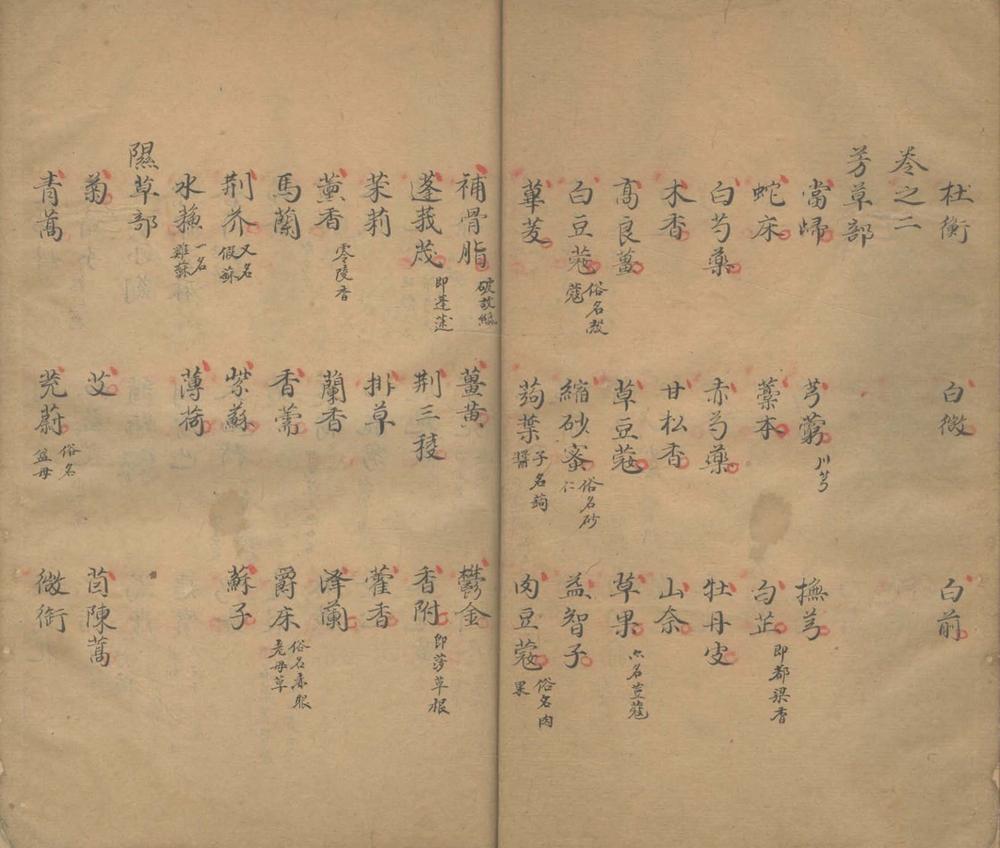 杜衡 白微 白前
卷之二
芳草部
當歸 芎藭 川芎 撫芎
蛇床 藁本 白芷 即都梁香
白芍藥 赤芍藥 牡丹皮
木香 甘松香 山奈
高良薑 草豆蔻 草果 亦名荳蔻
白豆蔻 俗名殼蔻 縮砂蜜 俗名砂仁 益智子
蓽茇 蒟葉 子名蒟醬 肉豆蔻 俗名肉果
補骨脂 破故紙 薑黃 鬱金
蓬莪茂 即蓬蒁 荆三稜 香附 即莎草根
茉莉 排草 藿香
薰香 零陵香 蘭香 澤蘭
馬蘭 香薷 爵床 俗名赤眼老母草
荆芥 又名假蘇 紫蘇 蘇子
水蘇 一名雞蘇 薄荷
隰草部
菊 艾 茵陳蒿
青蒿 茺蔚 俗名益母 薇銜